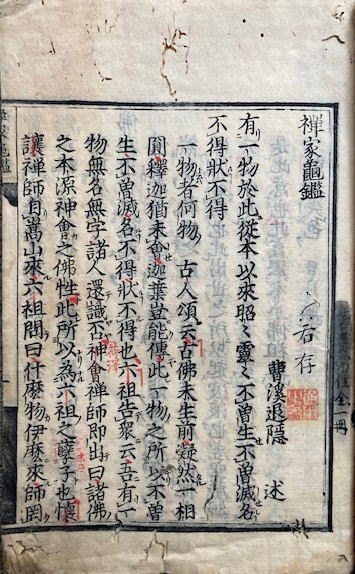 禪家龜鑑
若存
曹溪退隱 述
有一物於此從本以來昭々靈々不曽生不曽滅名
不得狀不得
一物者何物 古人頌云古佛未生前凝然一相
圓釋迦猶未會迦葉豈能傳此一物之所以不曽
生不曽滅名不得狀不得也六祖告衆云吾有一
物無名無字諸人還識否神會禪師即出曰諸佛
荷澤
之本源神會之佛性此所以為六祖之孽子也懷
讓禪師自嵩山來六祖問曰什麽物伊麽來師罔